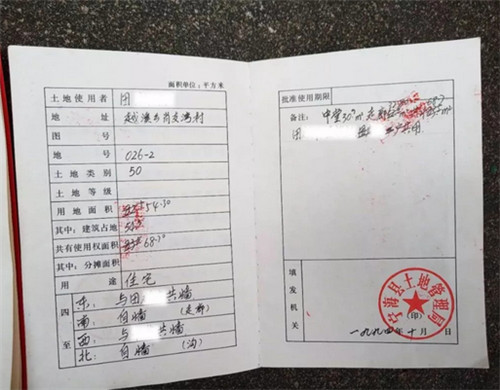 面积单位：平方米
土地使用者 田
地 址 越溪乡肖走湾村
图 号
地 号 026-2
土地类别 50
土地等级
用地面积 54.30
其中：建筑占地
共有使用权面积 68.30
其中：分摊面积
用 途 住宅
四至
东： 与田 共墙
南： 自墙 （走廊）
西： 与 共墙
北： 自墙 （沟）
批准使用期限
备注： 中堂30.m² 走廊
田 共用
填发机关
宁海县土地管理局
（印）
一九九四年十月 日